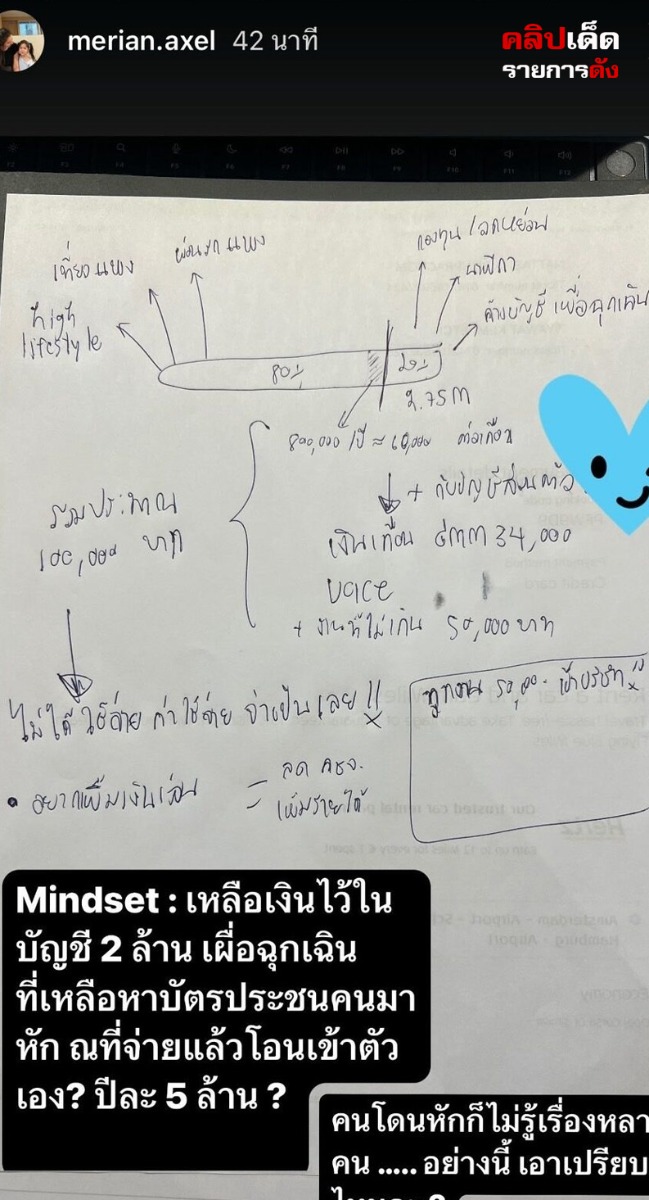 merian.axel 42 นาที
คลิปเด็ด
รายการดัง
เที่ยวแพง
ผ่อนรถแพง
กองทุน/ลดหย่อน
นาฬิกา
high
lifestyle
ค้างบัญชี เพื่อฉุกเฉิน
80%
20%
2.75M
800,000/ปี ≈ 60,000 ต่อเดือน
+ กับบัญชีส่วนตัว
รวมประมาณ
100,000 บาท
เงินเดือน 34,000
+ งานที่ไม่เกิน 50,000 บาท
ไม่ได้ใช้จ่าย ค่าใช้จ่าย จำเป็นเลย !!
ทุกงาน เข้าบริษัท !!
• อยากเพิ่มเงินเดือน = ลด คชจ.
เพิ่มรายได้
Mindset : เหลือเงินไว้ใน
บัญชี 2 ล้าน เผื่อฉุกเฉิน
ที่เหลือหาบัตรประชนคนมา
หัก ณที่จ่ายแล้วโอนเข้าตัว
เอง? ปีละ 5 ล้าน ?
คนโดนหักก็ไม่รู้เรื่องหลา
คน ..... อย่างนี้ เอาเปรียบ